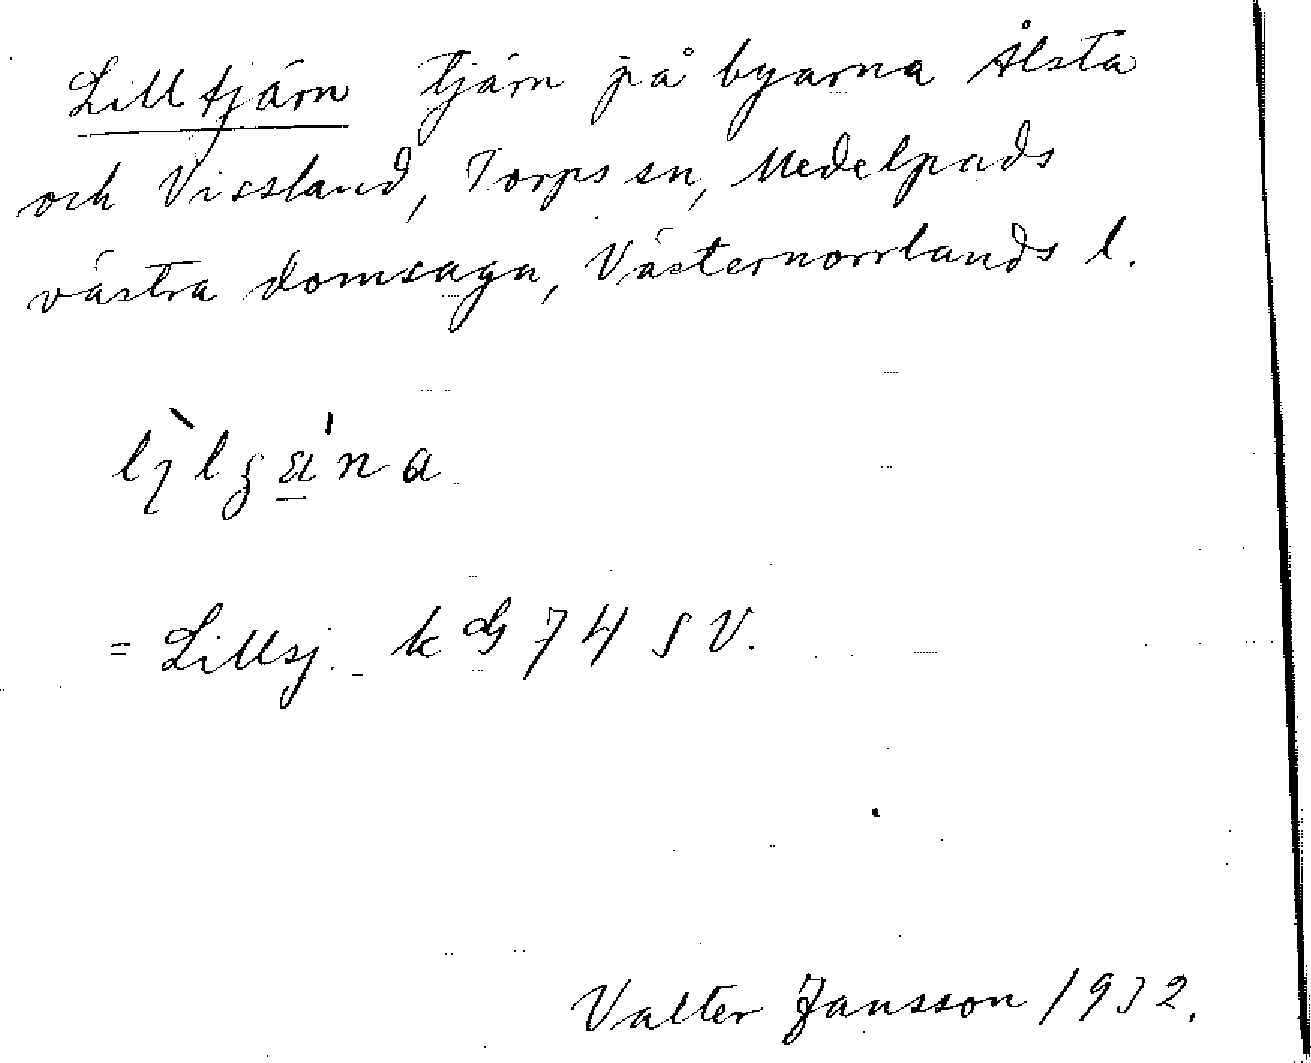 Lilltjärn tjärn på byarna Ålsta
och Vissland, Torps sn, Medelpads
västra domsaga, Västernorrlands l.
= Lillsj. kbl 74 SV.
Valter Jansson 1932.